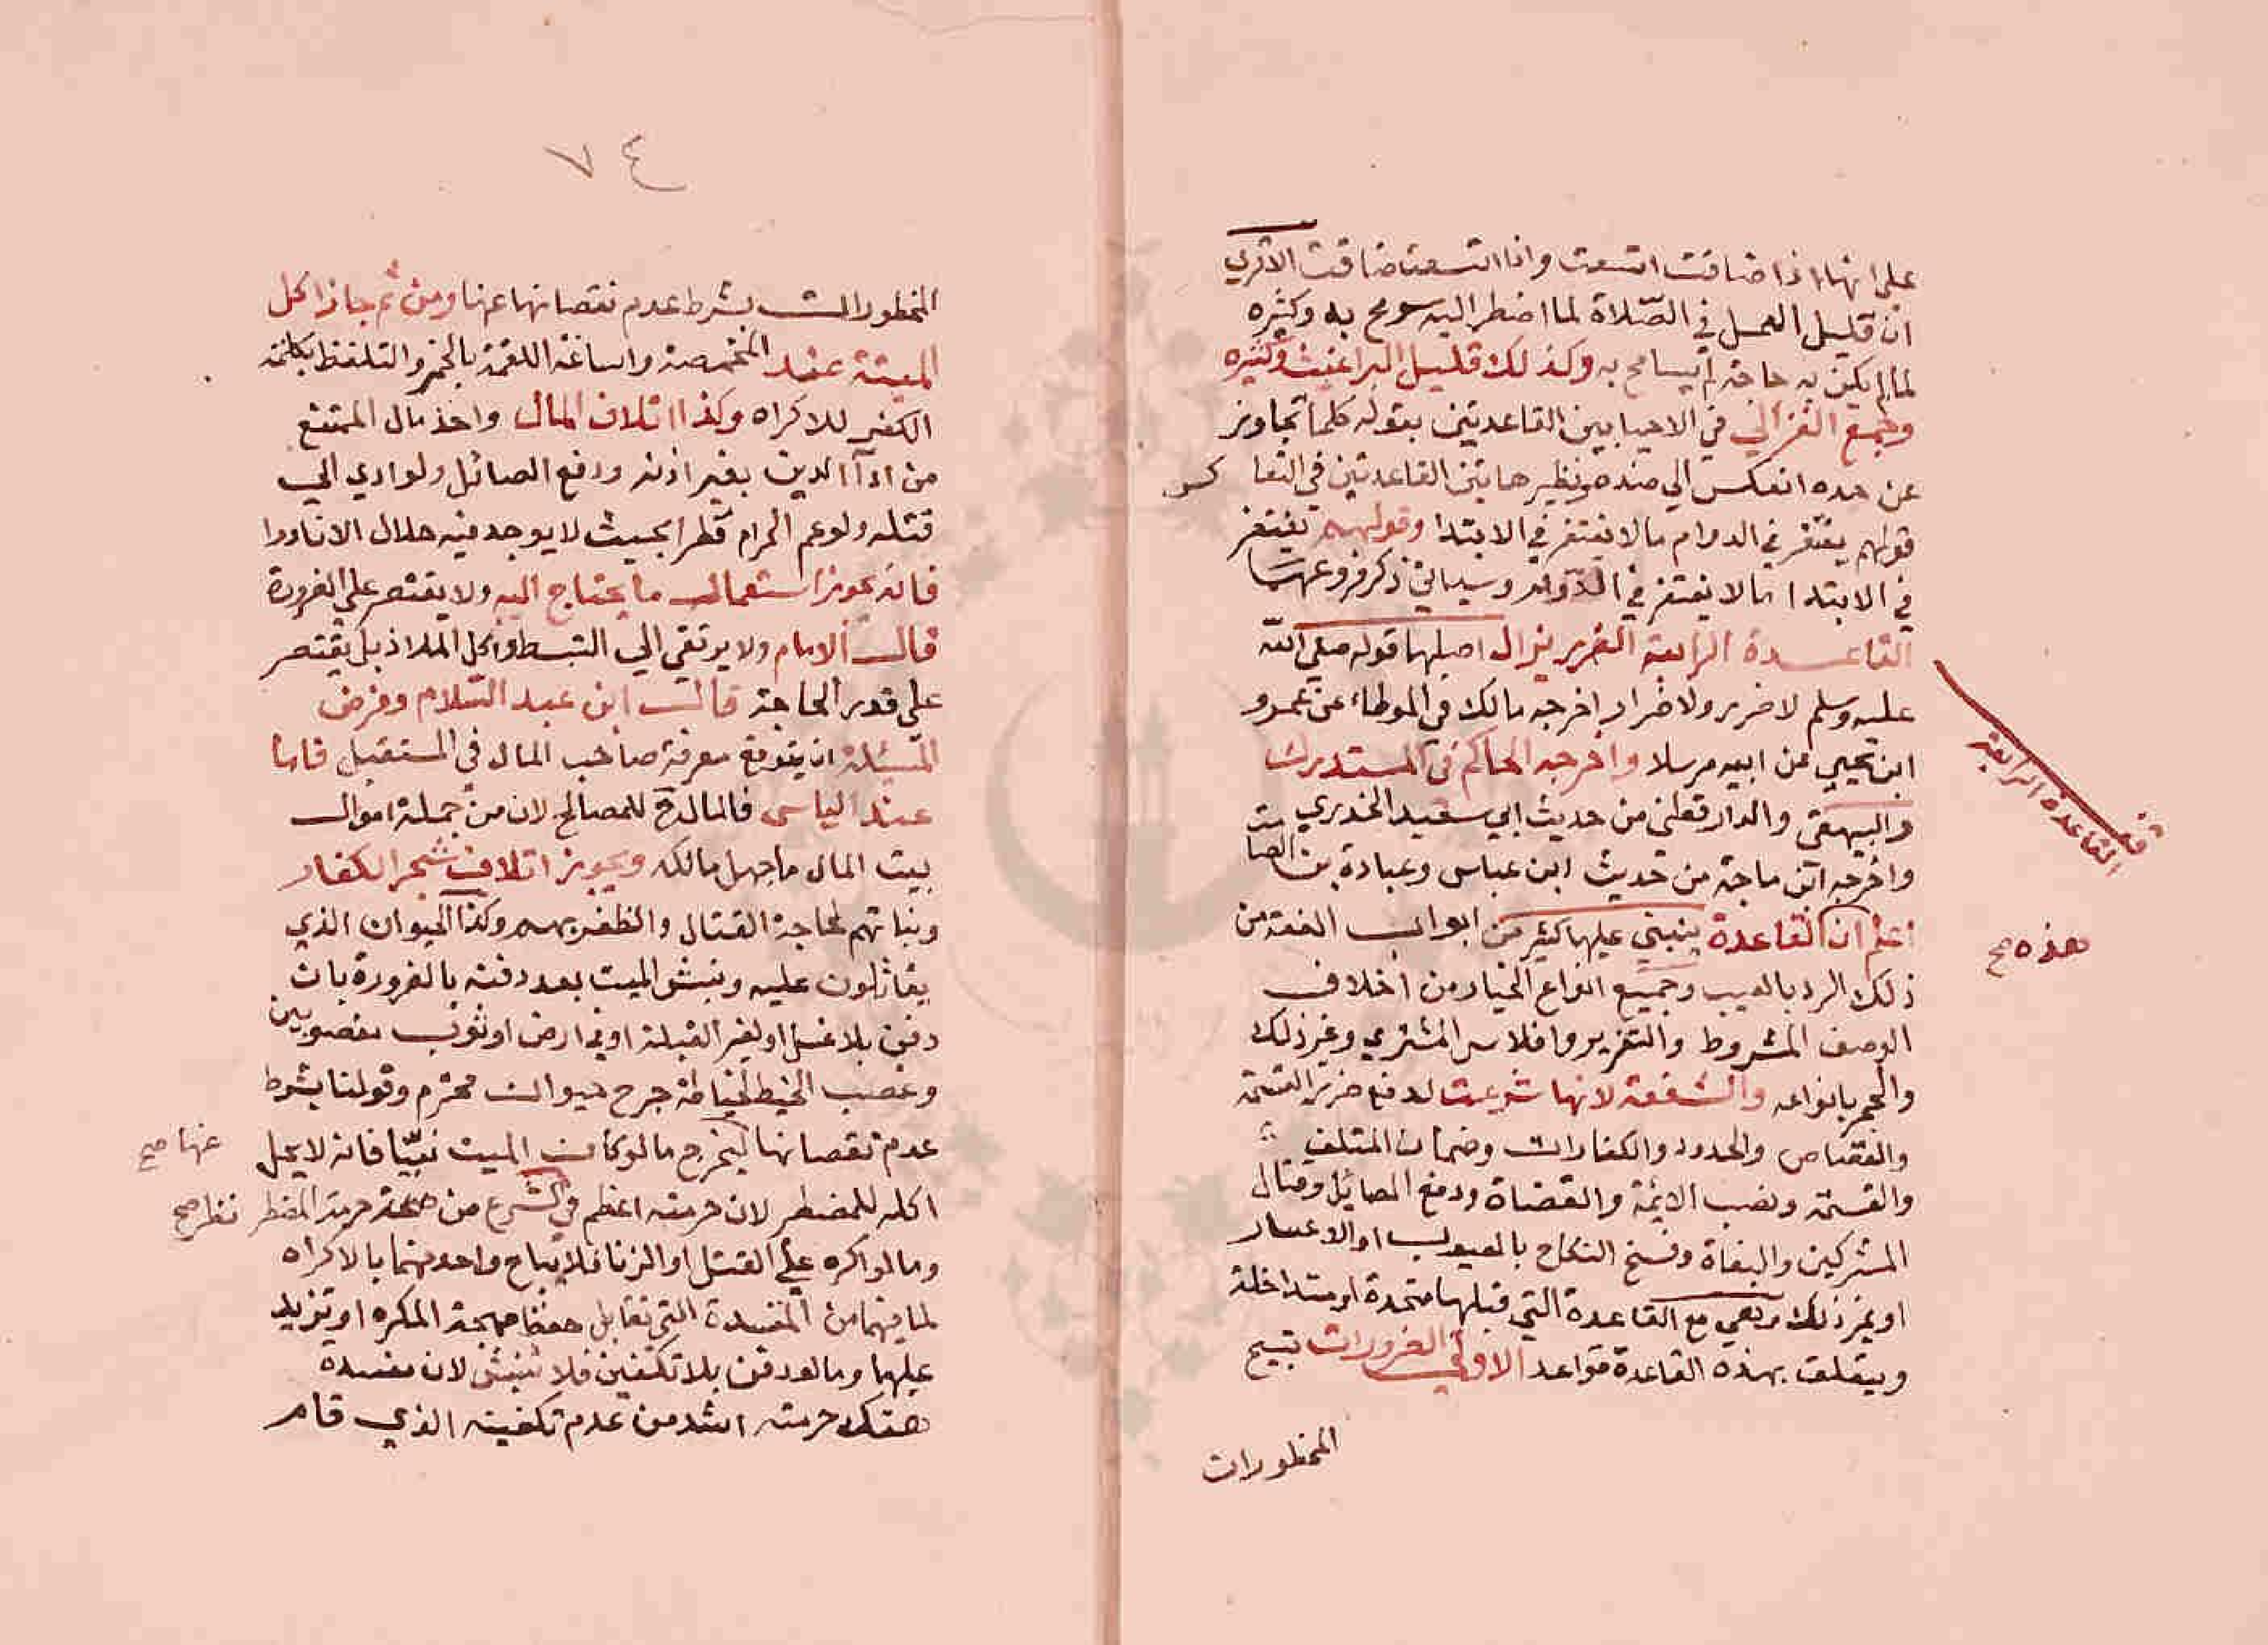 على انها اذا ضاقت اتسعت واذا اتسعت ضاقت الا تري
ان قليل العمل في الصّلاة لما اضطر اليه سومح به وكثيره
لما لم يكن به حاجة لم يسامح به وكذلك قليل البراغيث وكثيره
وجمع الغزالي في الاحيا بين القاعدتين بقوله كلما تجاوز
عن حده انعكس الي ضده ونظير هاتين القاعدتين في التعاكس
قولهم يغتفر في الدوام ما لا يغتفر في الابتدا وقولهم يغتفر
في الابتدا ما لا يغتفر في الدّوام وسياتي ذكر فروعهما
القاعدة الرابعة الضرر يزال اصلها قوله صلي الله
عليه وسلم لا ضرر ولا ضرار اخرجه مالك في الموطاء عن عمرو
ابن يحيي عن ابيه مرسلا واخرجه الحاكم في المستدرك
والبيهقي والدارقطني من حديث ابي سعيد الخدري
واخرجه ابن ماجة من حديث ابن عباس وعبادة بن الصامت
اعلم ان القاعدة ينبني عليها كثير من ابواب الفقه من
ذلك الرد بالعيب وجميع انواع الخيار من اخلاف
الوصف المشروط والتغرير وافلاس المشتري وغير ذلك
والحجر بانواعه والشفعة لانها شرعت لدفع ضرر القسمة
والقصاص والحدود والكفارات وضمان المتلف
والقسمة ونصب الائمة والقضاة ودفع الصائل وقتال
المشركين والبغاة وفسخ النكاح بالعيوب او الاعسار
او غير ذلك وهي مع القاعدة التي قبلها متحدة او متداخلة
ويتعلق بهذه القاعدة قواعد الاولي الضرورات تبيح
المحظورات
قف القاعدة الرابعة
هذه صح
٧٤
المحظورات بشرط عدم نقصانها عنها ومن ثم جاز اكل
الميتة عند المخمصة واساغة اللقمة بالخمر والتلفظ بكلمة
الكفر للاكراه وكذا اتلاف المال واخذ مال الممتنع
من ادآ الدين بغير اذنه ودفع الصائل ولو ادي الي
قتله ولو عم الحرام قطرا بحيث لا يوجد فيه حلال الا نادرا
فانه يجوز استعمال ما يحتاج اليه ولا يقتصر علي الضرورة
قال الامام ولا يرتقي الي التبسط واكل الملاذ بل يقتصر
علي قدر الحاجة قال ابن عبد السّلام وفرض
المسئلة ان يتوقع معرفة صاحب المال في المستقبل فاما
عند الياس فالمال للمصالح لان من جملة اموال
بيت المال ما جهل مالكه ويجوز اتلاف شجر الكفار
وبناتهم لحاجة القتال والظفر بهم وكذا الحيوان الذي
يقاتلون عليه ونبش الميت بعد دفنه بالضرورة بان
دفن بلا غسل او لغير القبلة او في ارض او ثوب مغصوبين
وغصب الخيط لخياطة جرح حيوان محترم وقولنا بشرط
عدم نقصانها ليخرج ما لو كان الميت نبيّا فانه لا يحل
عنها صح
اكله للمضطر لان حرمته اعظم في الشرع من مهجة حرمة المضطر
نظر صح
وما لو اكره علي القتل او الزنا فلا يباح واحد منهما بالاكراه
لما فيهما من المفسدة التي تقابل حفظ مهجة المكره او تزيد
عليها وما لو دفن بلا تكفين فلا ينبش لان مفسدة
هتك حرمته اشد من عدم تكفينه الذي قام